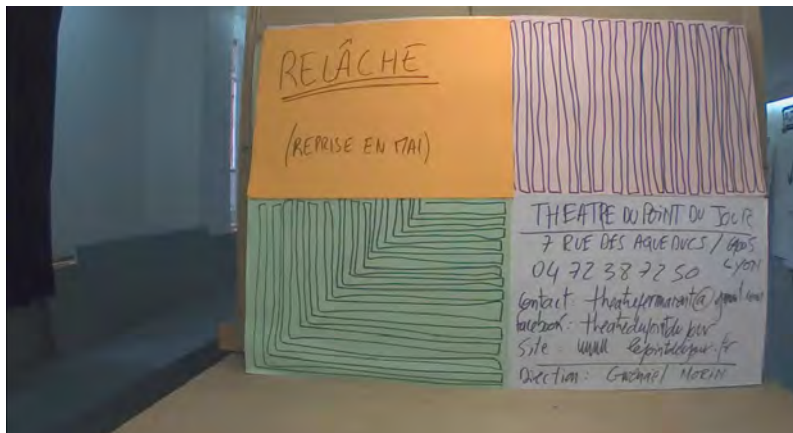 RELÂCHE
(REPRISE EN MAI)
THEATRE DU POINT DU JOUR
7 RUE DES AQUEDUCS / 69005
LYON
04 72 38 72 50
Contact : theatrepermanent@gmail.com
facebook : theatredupointdujour
Site : www.lepointdujour.fr
Direction : Gwenaël MORIN